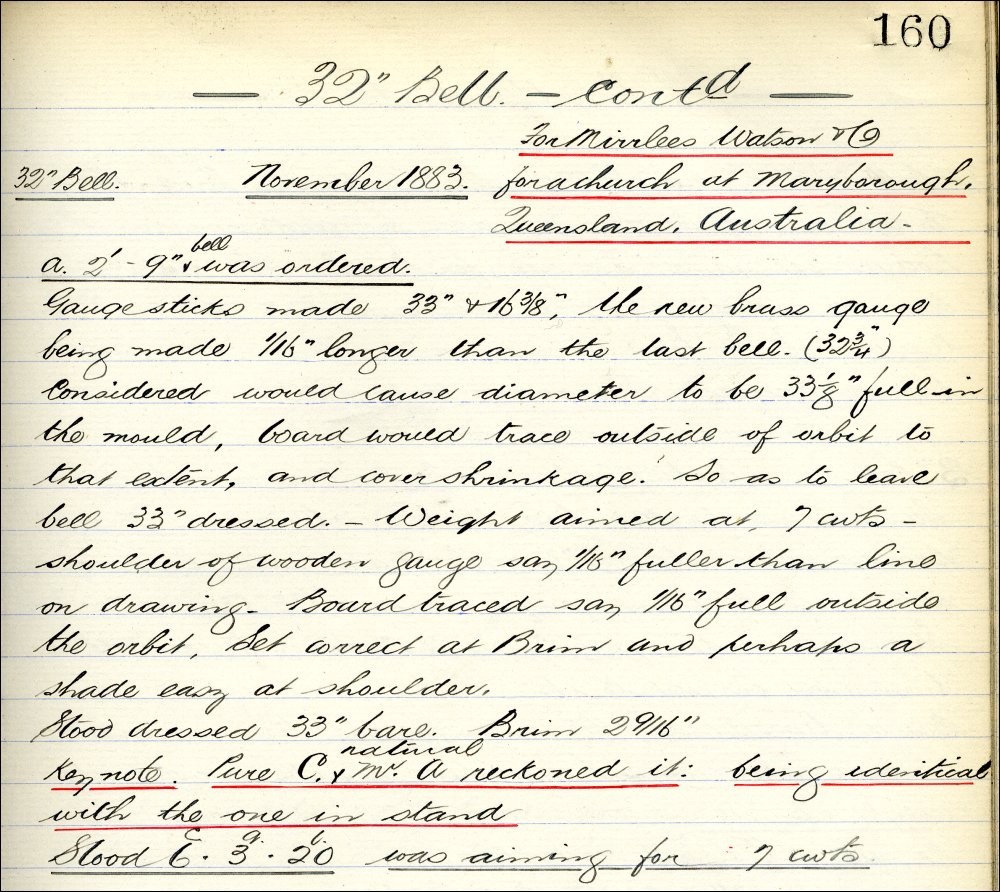 160
— 32" Bell. — contd —
For Mirrlees Watson & Co
32" Bell. November 1883. for a church at Maryborough,
Queensland. Australia -
bell
a. 2' - 9" was ordered.
Gauge sticks made 33" & 16 3/8", the new brass gauge
being made 1/16" longer than the last bell. (32 3/4")
Considered would cause diameter to be 33 1/8" full in
the mould, board would trace outside of orbit to
that extent, and cover shrinkage. So as to leave
bell 33" dressed. — Weight aimed at, 7 cwts -
shoulder of wooden gauge say 1/16" fuller than line
on drawing - Board traced say 1/16" full outside
the orbit, Set correct at Brim and perhaps a
shade easy at shoulder.
Stood dressed 33" bare. Brim 2 9/16"
natural
Key note. Pure C. & Mr. A reckoned it: being identical
with the one in stand
C q. l.
Stood 6 . 3 . 20 was aiming for 7 cwts.